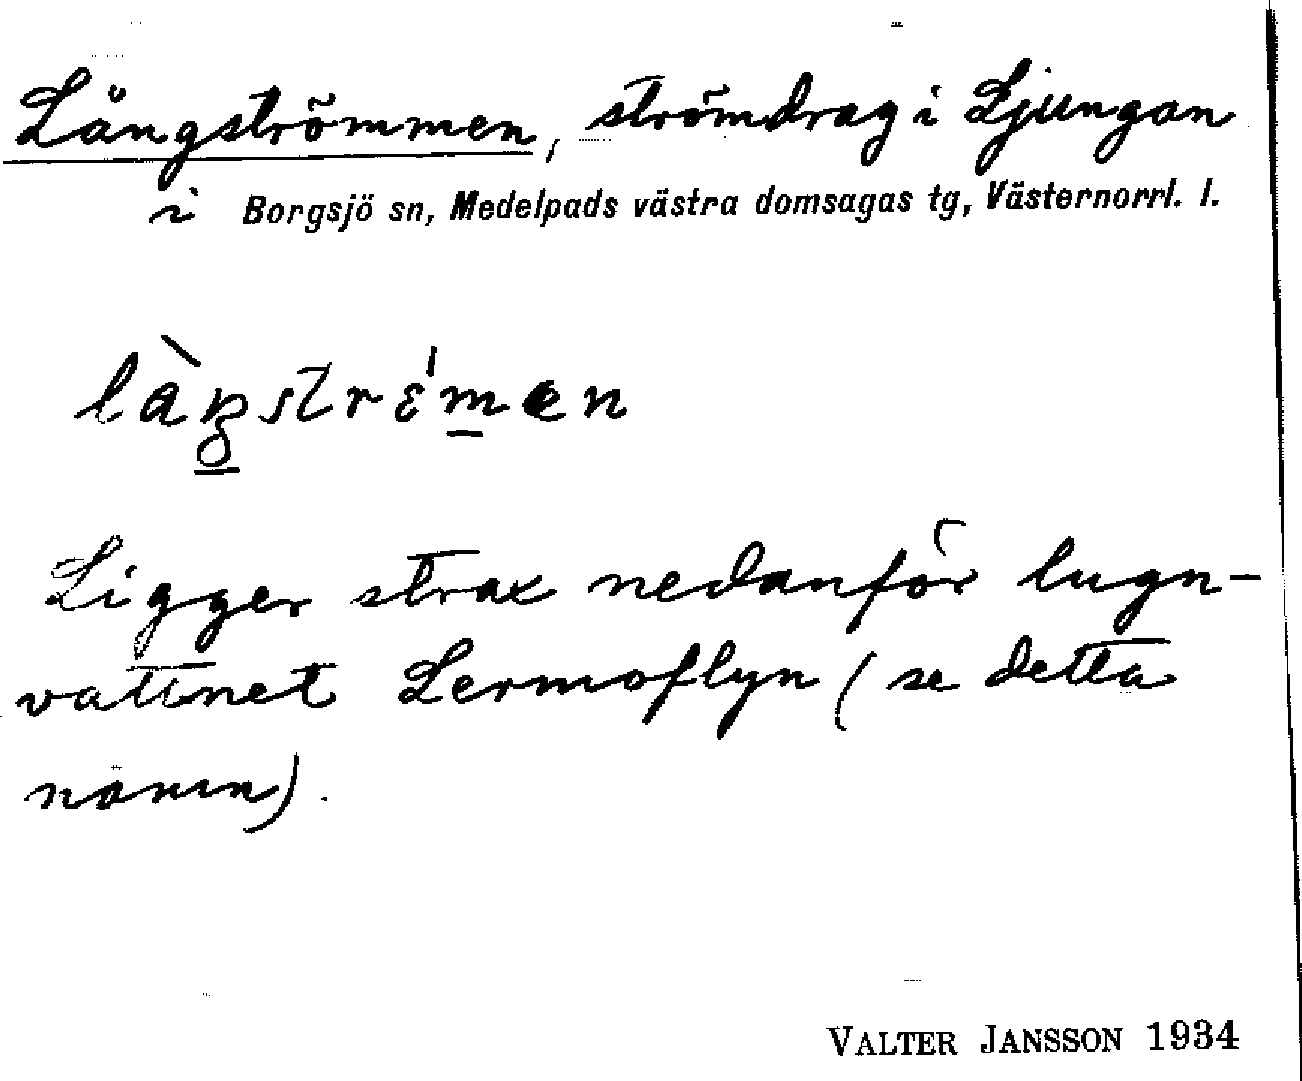 Långströmmen, strömdrag i Ljungan
i Borgsjö sn, Medelpads västra domsagas tg, Västernorrl. l.
Ligger strax nedanför lugn-
vattnet Lermoflyn (se detta
namn).
VALTER JANSSON 1934